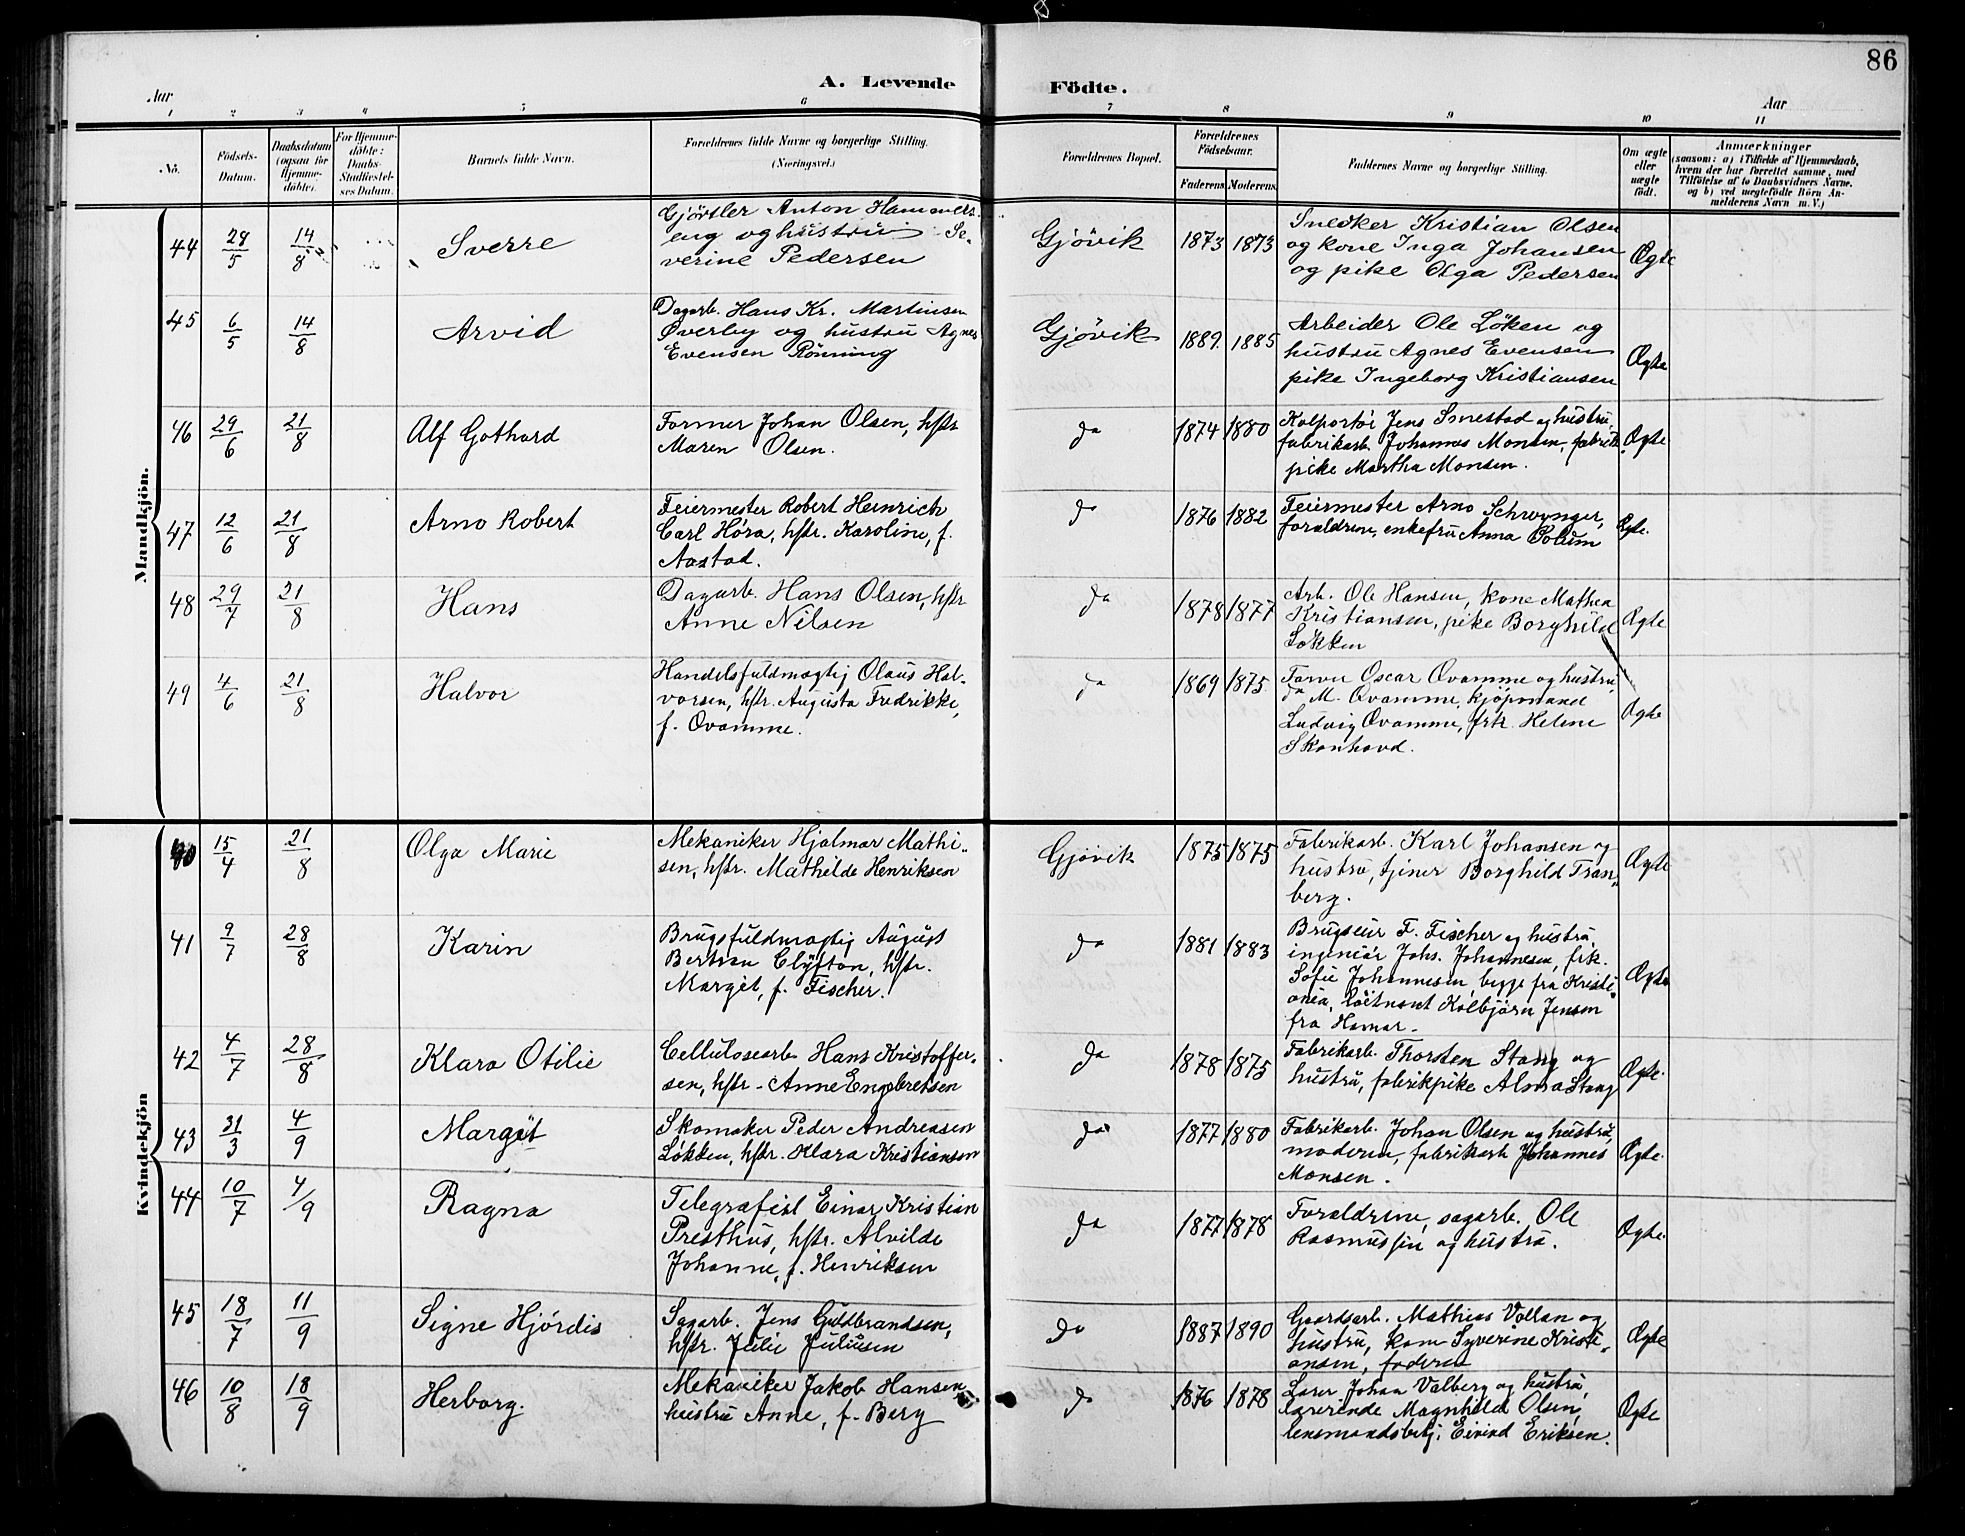 86
A. Levende
Födte.
Aar
Aar
1 2 3 4 5 6 7 8 9 10 11
No.
Födsels-
Datum.
Daabsdatum
(ogsaa for
Hjemme-
döbte).
For Hjemme-
döbte:
Daabs-
Stadfæstel-
ses Datum.
Barnets fulde Navn.
Forældrenes fulde Navne og borgerlige Stilling.
(Næringsvei.)
Forældrenes Bopæl.
Forældrenes
Födselsaar.
Faderens
Moderens
Faddernes Navne og borgerlige Stilling.
Om ægte
eller
uægte
födt.
Anmærkninger
(saasom: a) i Tilfælde af Hjemmedaab,
hvem der har forrettet samme, med
Tilföielse af to Daabsvidners Navne,
og b) ved uægtefödte Börn An-
melderens Navn m. V.)
Mandkjön.
44 28/5 14/8 Sverre
Gjörtler Anton Hammers-
eng og hustru Se-
verine Pedersen
Gjövik 1873 1873
Snedker Kristian Olsen
og kone Inga Johansen
og pike Olga Pedersen
Ægte
45 6/5 14/8 Arvid
Dagarb. Hans Kr. Martinsen
Øverby og hustru Agnes
Evensen Rönning
Gjövik 1889. 1885
Arbeider Ole Löken og
hustru Agnes Evensen
pike Ingeborg Kristiansen
Ægte
46 29/6 21/8 Alf Gothard
Former Johan Olsen, hstr
Maren Olsen.
da 1874 1880
Kolportör Jens Smestad og hustru,
fabrikarb. Johannes Monsen, fabrik
pike Martha Monsen.
Ægte
47 12/6 21/8 Arno Robert
Feiermester Robert Heinrich
Carl Höra, hstr. Karoline, f.
Aastad.
da 1876 1882
Feiermester Arno
forældrene, enkefru Anna
Ægte.
48 29/7 21/8 Hans
Dagarb. Hans Olsen, hstr
Anne Nilsen
da 1878 1877
Arb. Ole Hansen, kone Mathea
Kristiansen, pike Borghild
Lökken
Ægte
49 4/6 21/8 Halvor
Handelsfuldmægtig Olaus Hal-
vorsen, hstr. Augusta Fredrikke,
f. Qvamme.
da 1869 1875
Farver Oscar Qvamme og hustru,
da M. Qvamme, kjöpmand
Ludvig Qvamme, frk. Helene
Skonhovd.
Ægte
Kvindekjön
40 15/4 21/8 Olga Marie
Mekaniker Hjalmar Mathi-
sen, hstr. Mathilde Henriksen
Gjövik 1875 1875
Fabrikarb. Karl Johansen og
hustru, tjener Borghild Tran-
berg.
Ægte
41 9/7 28/8 Karin
Brugsfuldmægtig August
Bertran Clyfton, hstr.
Margit, f. Fischer.
da 1881 1883
Brugseier F. Fischer og hustru,
ingeniör Johs. Johannesen, frk.
Sofie Johannesen, begge fra Kristi-
ania, löitnant Kolbjörn Jensen
fra Hamar.
Ægte
42 4/7 28/8 Klara Otilie
Cellulosearb. Hans Kristoffer-
sen, hstr. Anne Engebretsen
da 1878 1875
Fabrikarb. Thorsten Stang og
hustru, fabrikpike Alma Stang
Ægte.
43 31/3 4/9 Margit
Skomaker Peder Andreasen
Løkken, hstr. Klara Kristiansen
da 1877 1880
Fabrikarb. Johan Olsen og hustru,
moderen, fabrikarb Johannes
Monsen.
Ægte.
44 10/7 4/9 Ragna
Telegrafist Einar Kristian
Presthus, hstr. Alvilde
Johanne, f. Henriksen
da 1877 1878
Forældrene, sagarb. Ole
Rasmussen og hustru.
Ægte.
45 18/7 11/9 Signe Hjördis
Sagarb. Jens Guldbrandsen,
hstr. Julie Juliusen
da 1887 1890
Gaardsarb. Mathias Vollan og
hustru, kone Syverine Kristi-
ansen, faderen
Ægte
46 10/8 18/9 Herborg.
Mekaniker Jakob Hansen
hustru Anne, f. Berg
da 1876 1878
Lærer Johan Valberg og hustru,
lærerinde Magnhild Olsen,
lensmandsbetj. Eivind Eriksen.
Ægte